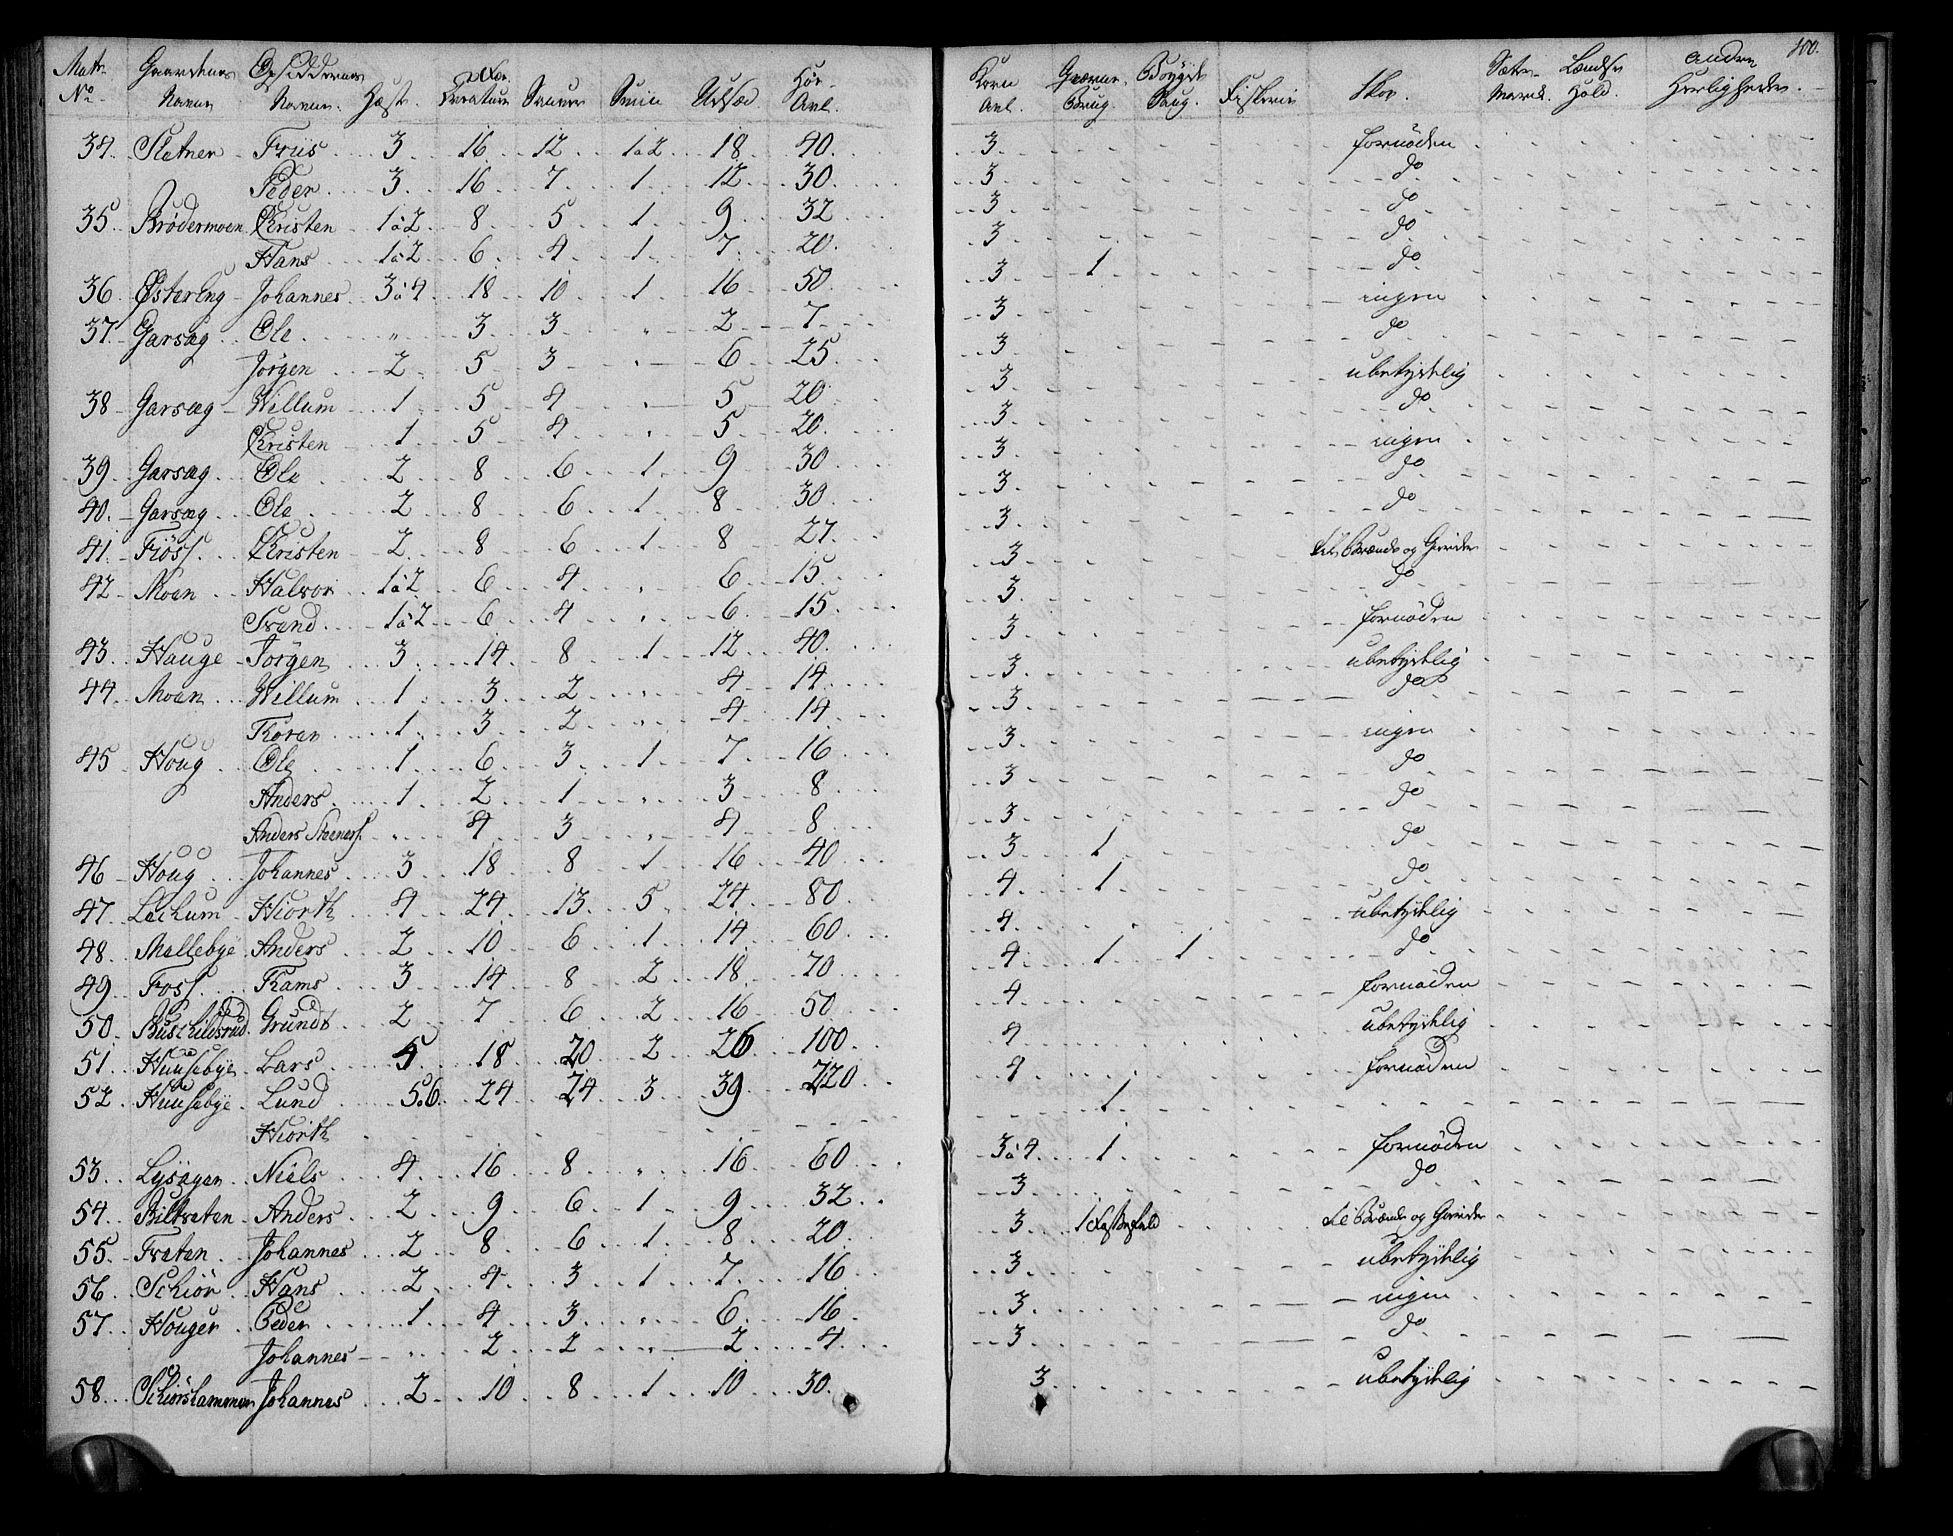 100.
Matr. No. Gaardenes Navne Opsiddernes Navne. Hæst. Stor Creature Sauer Sviin Udsæd. Høe-Avl. Korn Avl. Qværne Brug. Bøygde Saug. Fiskerie Skov. Sæter-Marck. Lændsе Hold. Andre Herligheder.
34. Sletner Friis 3 16 12 1a2 18 40. 3. fornøden
Peder 3 16 7 1 12 30. 3. do
35 Brødermoen Christen 1a2 8 5 1 9 32 3. do
Hans 1a2 6 4 1 7 20. 3. do
36. Østereng Johannes 3a4 18 10 1 16 50. 3. 1 do
37. Garsæg Ole " 3 3 " 2 7. 3. ingen
Jørgen 2 5 3 " 6 25. 3. do
38 Garsæg Willum 1 5 4 " 5 20. 3. ubetydelig
Christen 1 5 4 " 5 20. 3. do
39. Garsæg Ole 2 8 6 1 9 30 3. ingen
40. Garsæg Ole 2 8 6 1 8 30 3. do
41. Fiøss Christen 2 8 6 1 8 27. 3. do
42 Moen Halvor 1a2 6 4 " 6 15. 3 til Brænde og Gierder
Svend 1a2 6 4 " 6 15 3. do
43. Hauge Jørgen 3 14 8 1 12 40. 3. fornøden
44. Moen Willum 1 3 2 " 4 14. 3. ubetydelig
Thoren 1 3 2 " 4 14 3. do
45 Houg Ole 1 6 3 1 7 16 3. ingen
Anders 1 2 1 " 3 8 3. do
Anders Steeners. " 4 3 " 4 8 3. do
46 Houg Johannes 3 18 8 1 16 40 3. 1 do
47. Lechum Hiorth 4 24 13 5 24 80. 4. 1 do
48. Mellebye Anders 2 10 6 1 14 60. 4. ubetydelig
49. Foss Thams 3 14 8 2 18. 70. 4. 1 1 do
50. Buschildsrud Grundt 2 7 6 2 16 50 4. fornøden
51. Huusebye Lars 5 18 20 2 26 100 4. ubetydelig
52. Huusebye Lund 5a6 24 24 3 39 220. 4. fornøden
Hiorth 1
53. Lysagen Niels 4 16 8 " 16 60 3a4 1 fornøden
54. Biltveten Anders 2 9 6 1 9 32 3 do
55. Tveten Johannes 2 8 6 1 8 20. 3. 1 til Brænde og Gierder
56. Schiør Hans 2 4 3 1 7 16 3. ubetydelig
57. Houger Peder 1 4 3 " 6 16. 3. ingen
Johannes " 2 2 " 2 4. 3. do
58. Schiørshammer Johannes 2 10 8 1 10 30. 3. ubetydelig